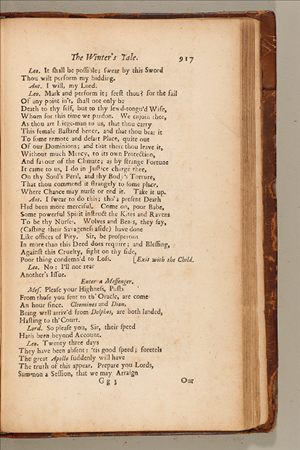 The Winter's Tale. 917
Leo. It shall be possible; swear by this Sword
Thou wilt perform my bidding.
Ant. I will, my Lord.
Leo. Mark and perform it; seest thou? for the fail
Of any point in't, shall not only be
Death to thy self, but to thy lewd-tongu'd Wife,
Whom for this time we pardon. We enjoin thee,
As thou art Liege-man to us, that thou carry
This female Bastard hence, and that thou bear it
To some remote and desart Place, quite out
Of our Dominions; and that there thou leave it,
Without much Mercy, to its own Protection,
And favour of the Climate; as by strange Fortune
It came to us, I do in Justice charge thee,
On thy Soul's Peril, and thy Body's Torture,
That thou commend it strangely to some place,
Where Chance may nurse or end it. Take it up.
Ant. I swear to do this; tho' a present Death
Had been more merciful. Come on, poor Babe,
Some powerful Spirit instruct the Kites and Ravens
To be thy Nurses. Wolves and Bears, they say,
(Casting their Savageness aside) have done
Like offices of Pity. Sir, be prosperous
In more than this Deed does require; and Blessing,
Against this Cruelty, fight on thy side,
Poor thing condemn'd to Loss. [Exit with the Child.
Leo. No; I'll not rear
Another's Issue.
Enter a Messenger.
Mes. Please your Highness, Posts
From those you sent to th' Oracle, are come
An hour since. Cleomines and Dion,
Being well arriv'd from Delphos, are both landed,
Hasting to th' Court.
Lord. So please you, Sir, their speed
Hath been beyond Account.
Leo. Twenty three days
They have been absent: 'tis good speed; foretels
The great Apollo suddenly will have
The truth of this appear. Prepare you Lords,
Summon a Session, that we may Arraign
G g 3 Our